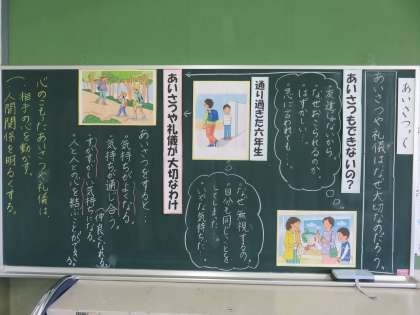 あいさつって
あいさつや礼儀はなぜ大切なのだろう。
あいさつもできないの？
・友達じゃないから。
・なぜおこられるのか。
・はずかしい。
・急に言われても…
通り過ぎた六年生
・なぜ無視するの。
・自分も同じことを
してしまった。
・いやな気持ちだ。
あいさつや礼儀が大切なわけ
あいさつをすると…
・気持ちがよくなる。
・気持ちが通じ合う。
仲良くなれる。
・すがすがしい気持ちになる。
・人と人の心を結ぶことができる。
心のこもったあいさつや礼儀は、
相手の心を動かす。
人間関係を明るくする。